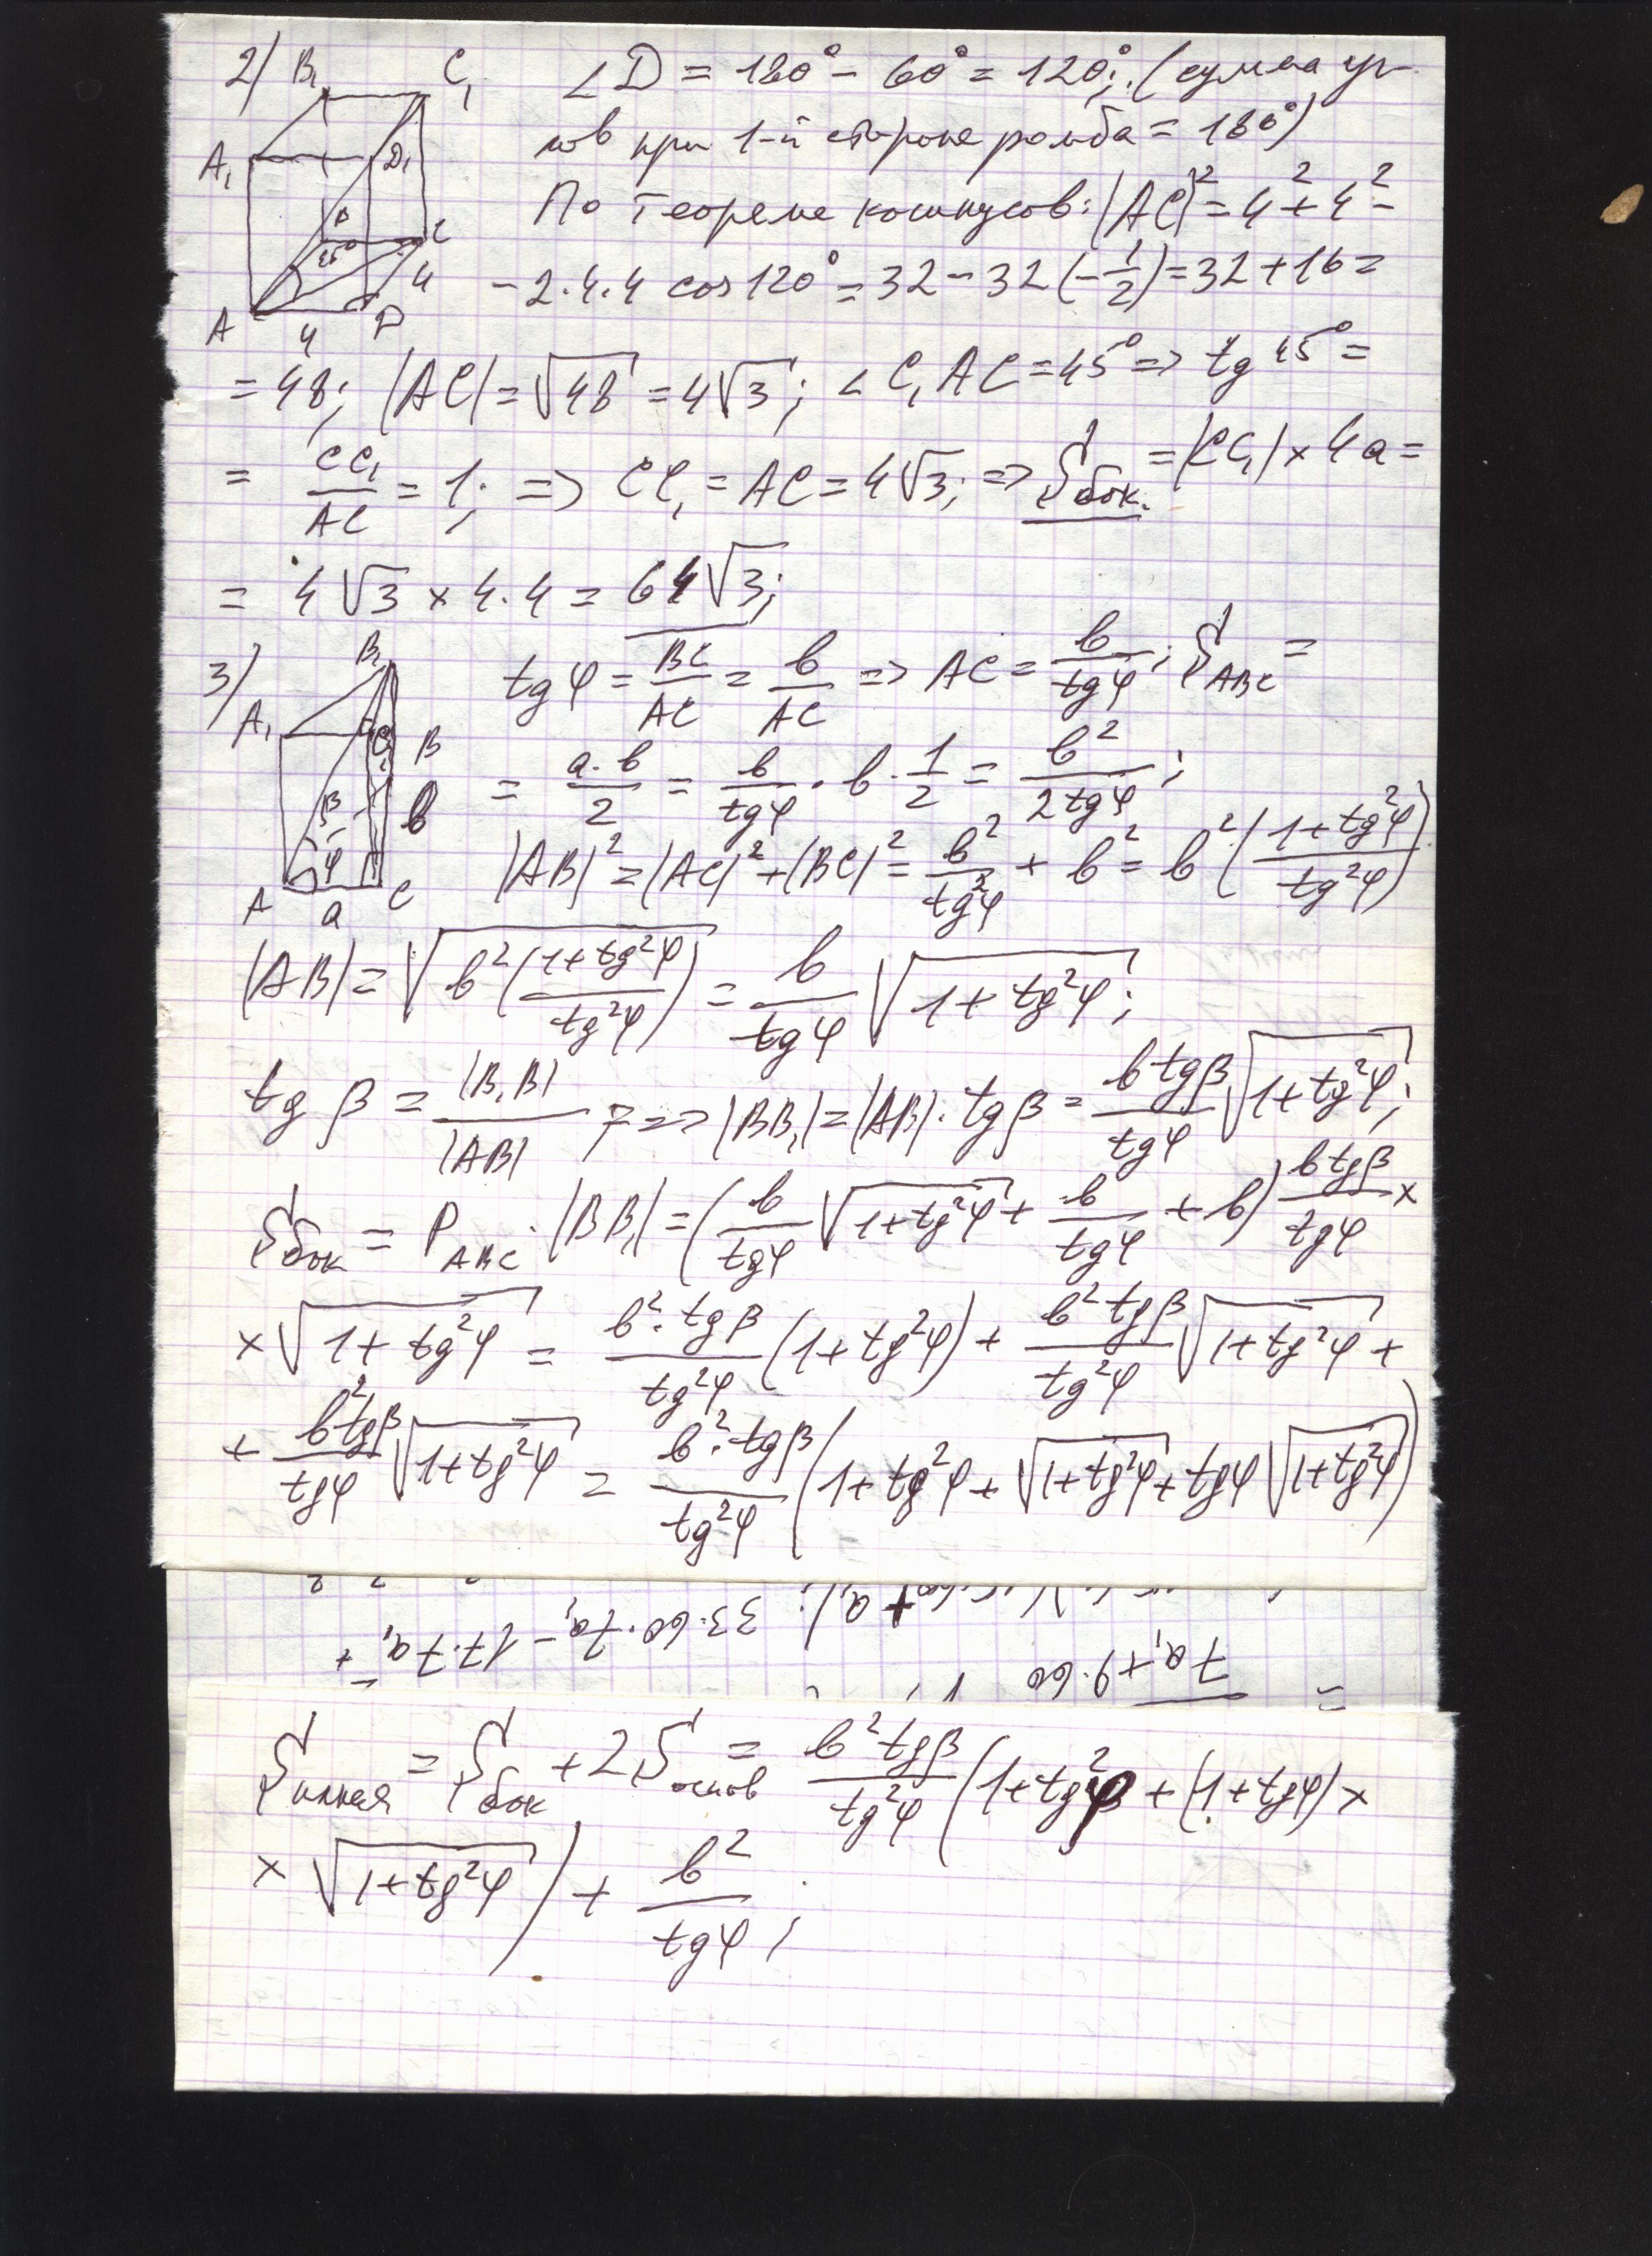 2) B₁ C₁ ∠D = 180° - 60° = 120°; (сумма уг-
A₁ D₁ лов при 1-й стороне ромба = 180°)
По теореме косинусов: |AC|² = 4² + 4² -
B 45° C 4 - 2·4·4 cos 120° = 32 - 32(-1/2) = 32 + 16 =
A 4 D
= 48; |AC| = √48 = 4√3; ∠C₁AC = 45° => tg 45° =
= CC₁/AC = 1; => CC₁ = AC = 4√3; => Sбок. = |CC₁| × 4a =
= 4√3 × 4·4 = 64√3;
3) B₁ tgφ = BC/AC = b/AC => AC = b/tgφ; S_ABC =
A₁ C₁ B = a·b/2 = b/tgφ · b · 1/2 = b²/2tgφ;
β b
φ |AB|² = |AC|² + |BC|² = b²/tg²φ + b² = b²((1+tg²φ)/tg²φ)
A a C
|AB| = √(b²((1+tg²φ)/tg²φ)) = b/tgφ √(1+tg²φ);
tgβ = |B₁B|/|AB| ; => |BB₁| = |AB|·tgβ = b tgβ/tgφ √(1+tg²φ);
Sбок = P_ABC · |BB₁| = (b/tgφ √(1+tg²φ) + b/tgφ + b) b tgβ/tgφ ×
× √(1+tg²φ) = b²·tgβ/tg²φ (1+tg²φ) + b² tgβ/tg²φ √(1+tg²φ) +
+ b² tgβ/tgφ √(1+tg²φ) = b²·tgβ/tg²φ (1+tg²φ + √(1+tg²φ) + tgφ √(1+tg²φ))
33·60·7a₁ - 17·7a₁ +
7a₁ + 9·60 =
Sполная = Sбок + 2Sоснов = b² tgβ/tg²φ (1+tg²φ + (1+tgφ) ×
× √(1+tg²φ)) + b²/tgφ;